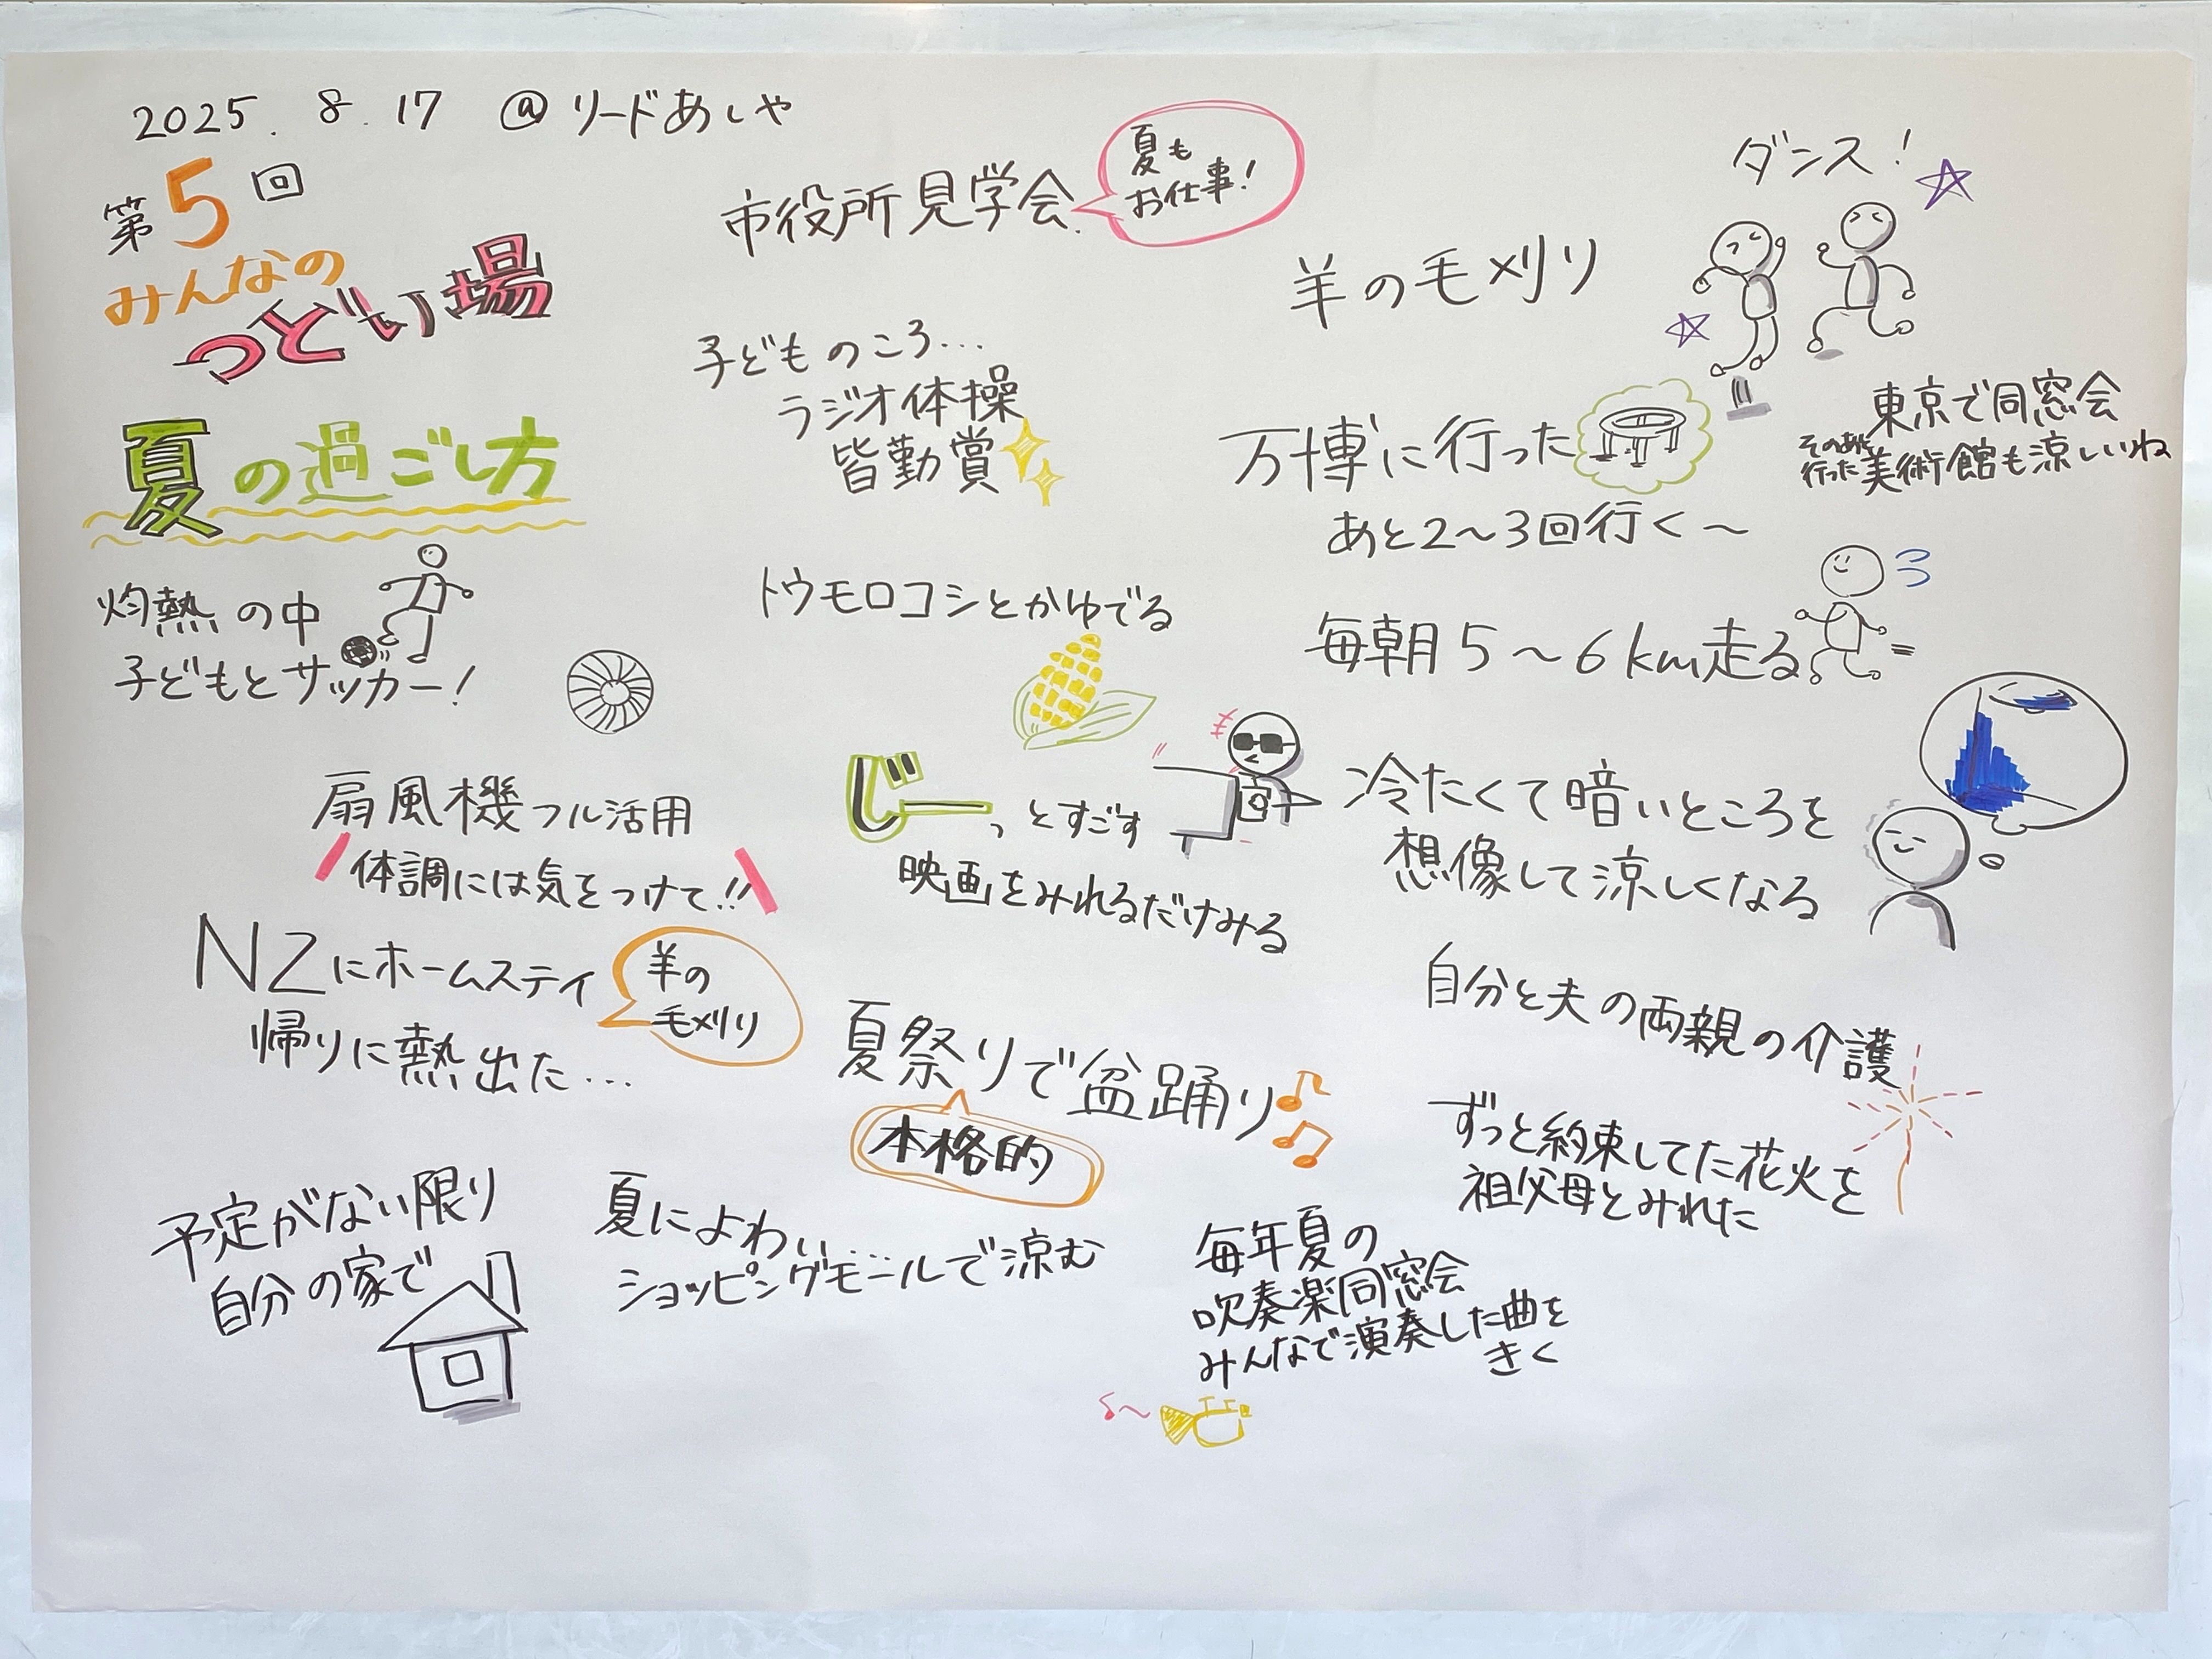 2025. 8. 17 @リードあしや
第5回
みんなの
つどい場
夏の過ごし方
灼熱の中
子どもとサッカー!
扇風機フル活用
体調には気をつけて!!
NZにホームステイ
帰りに熱出た…
羊の
毛刈り
予定がない限り
自分の家で
市役所見学会
夏も
お仕事!
子どものころ…
ラジオ体操
皆勤賞
トウモロコシとかゆでる
じーっとすごす
映画をみれるだけみる
夏祭りで盆踊り
本格的
夏によわい…
ショッピングモールで涼む
羊の毛刈り
ダンス!
万博に行った
あと2〜3回行く〜
東京で同窓会
そのあと
行った美術館も涼しいね
毎朝5〜6km走る
冷たくて暗いところを
想像して涼しくなる
自分と夫の両親の介護
ずっと約束してた花火を
祖父母とみれた
毎年夏の
吹奏楽同窓会
みんなで演奏した曲を
きく